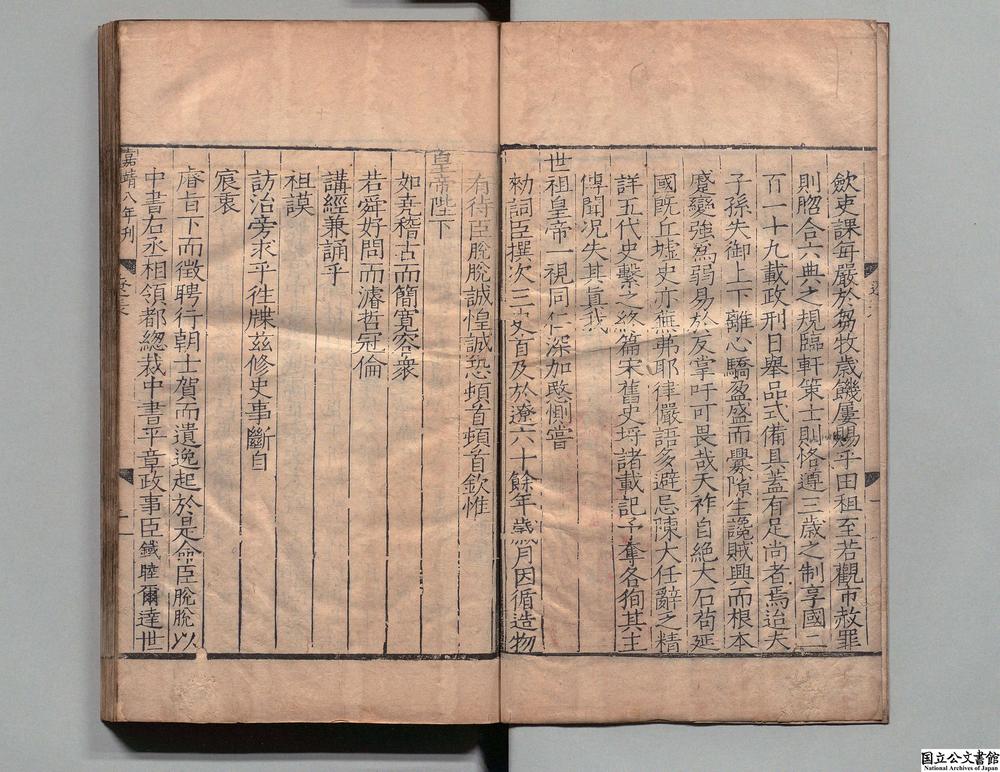 歛吏課每嚴於芻牧歲饑屢賜乎田租至若觀市赦罪
則脗合六典之規臨軒策士則恪遵三歲之制享國二
百一十九載政刑日舉品式備具蓋有足尚者焉迨夫
子孫失御上下離心驕盈盛而釁隙生讒賊興而根本
蹙變強爲弱易於反掌吁可畏哉天祚自絶大石苟延
國既丘墟史亦蕪茀耶律儼語多避忌陳大任辭乏精
詳五代史繫之終篇宋舊史埒諸載記予奪各狥其主
傳聞况失其眞我
世祖皇帝一視同仁深加愍惻嘗
勑詞臣撰次三史首及於遼六十餘年歲月因循造物
有待臣脫脫誠惶誠恐頓首頓首欽惟
皇帝陛下
如堯稽古而簡寬容衆
若舜好問而濬哲冠倫
講經兼誦乎
祖謨
訪治旁求乎徃牒兹修史事斷自
宸衷
睿旨下而徵聘行朝士賀而遺逸起於是命臣脫脫以
中書右丞相領都總裁中書平章政事臣鐵睦爾達世
嘉靖八年刊
一
国立公文書館
National Archives of Japan